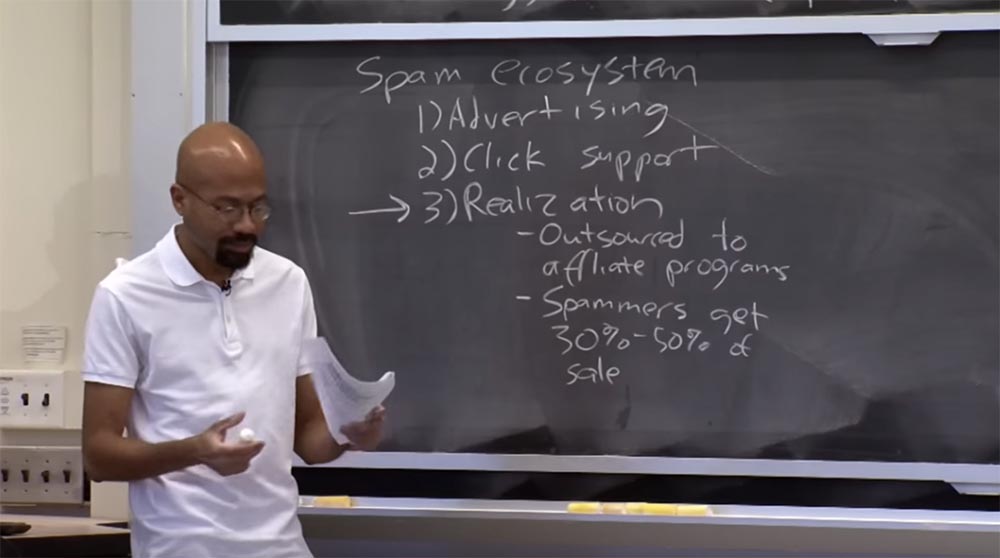 Spam ecosystem
1) Advertising
2) Click support
→ 3) Realization
- Outsourced to
affliate programs
- Spammers get
30%-50% of
sale